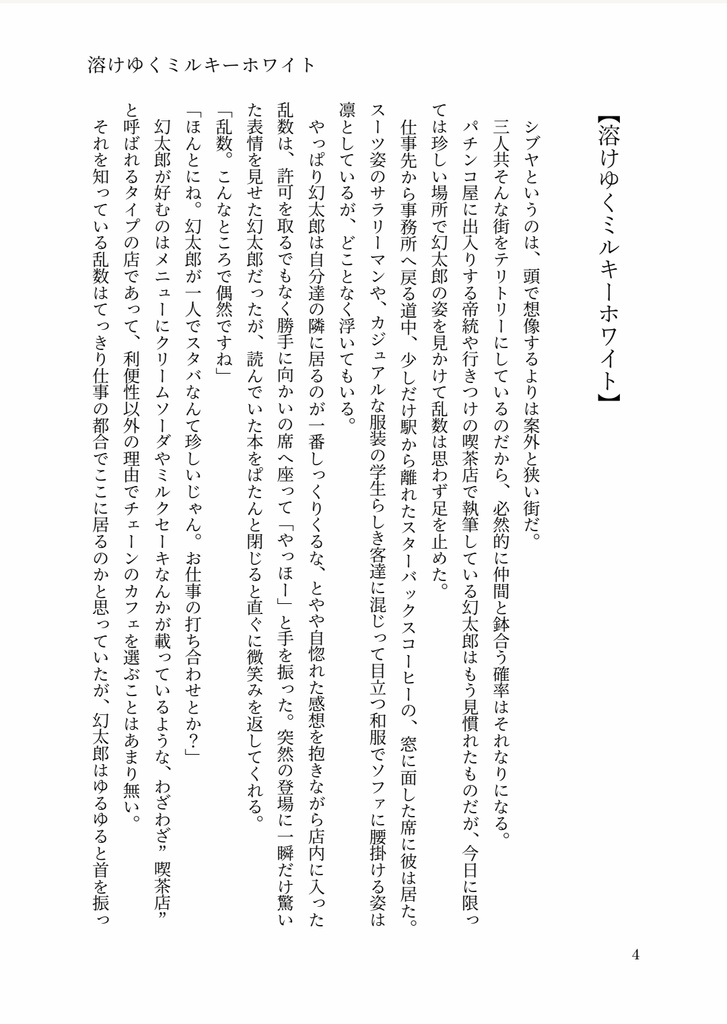 溶けゆくミルキーホワイト
【溶けゆくミルキーホワイト】
シブヤというのは、頭で想像するよりは案外と狭い街だ。
三人共そんな街をテリトリーにしているのだから、必然的に仲間と鉢合う確率はそれなりになる。
パチンコ屋に出入りする帝統や行きつけの喫茶店で執筆している幻太郎はもう見慣れたものだが、今日に限っ
ては珍しい場所で幻太郎の姿を見かけて乱数は思わず足を止めた。
仕事先から事務所へ戻る道中、少しだけ駅から離れたスターバックスコーヒーの、窓に面した席に彼は居た。
スーツ姿のサラリーマンや、カジュアルな服装の学生らしき客達に混じって目立つ和服でソファに腰掛ける姿は
凛としているが、どことなく浮いてもいる。
やっぱり幻太郎は自分達の隣に居るのが一番しっくりくるな、とやや自惚れた感想を抱きながら店内に入った
乱数は、許可を取るでもなく勝手に向かいの席へ座って「やっほー」と手を振った。突然の登場に一瞬だけ驚い
た表情を見せた幻太郎だったが、読んでいた本をぱたんと閉じると直ぐに微笑みを返してくれる。
「乱数。こんなところで偶然ですね」
「ほんとにね。幻太郎が一人でスタバなんて珍しいじゃん。お仕事の打ち合わせとか？」
幻太郎が好むのはメニューにクリームソーダやミルクセーキなんかが載っているような、わざわざ”喫茶店”
と呼ばれるタイプの店であって、利便性以外の理由でチェーンのカフェを選ぶことはあまり無い。
それを知っている乱数はてっきり仕事の都合でここに居るのかと思っていたが、幻太郎はゆるゆると首を振っ
4